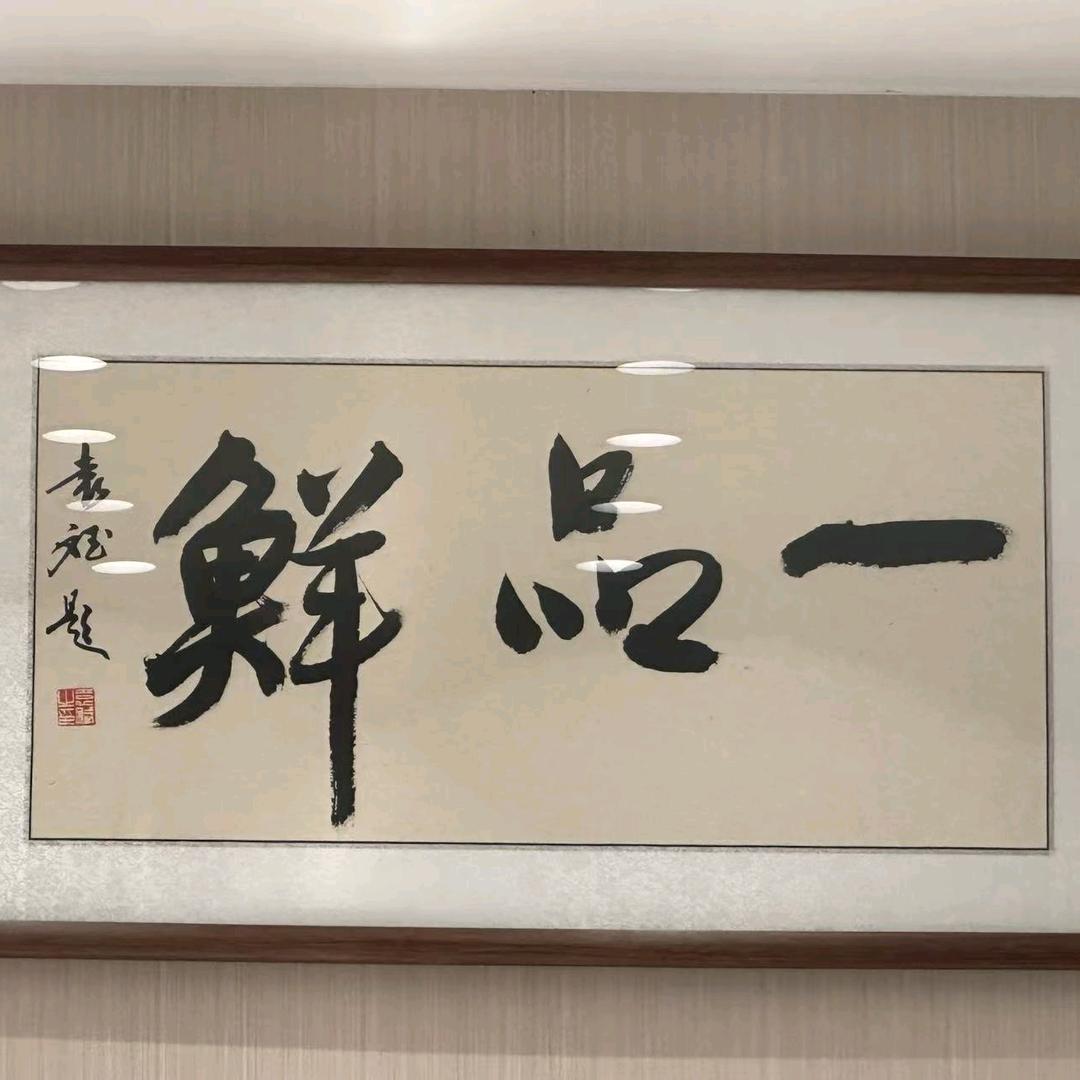 一品鲜
袁 题